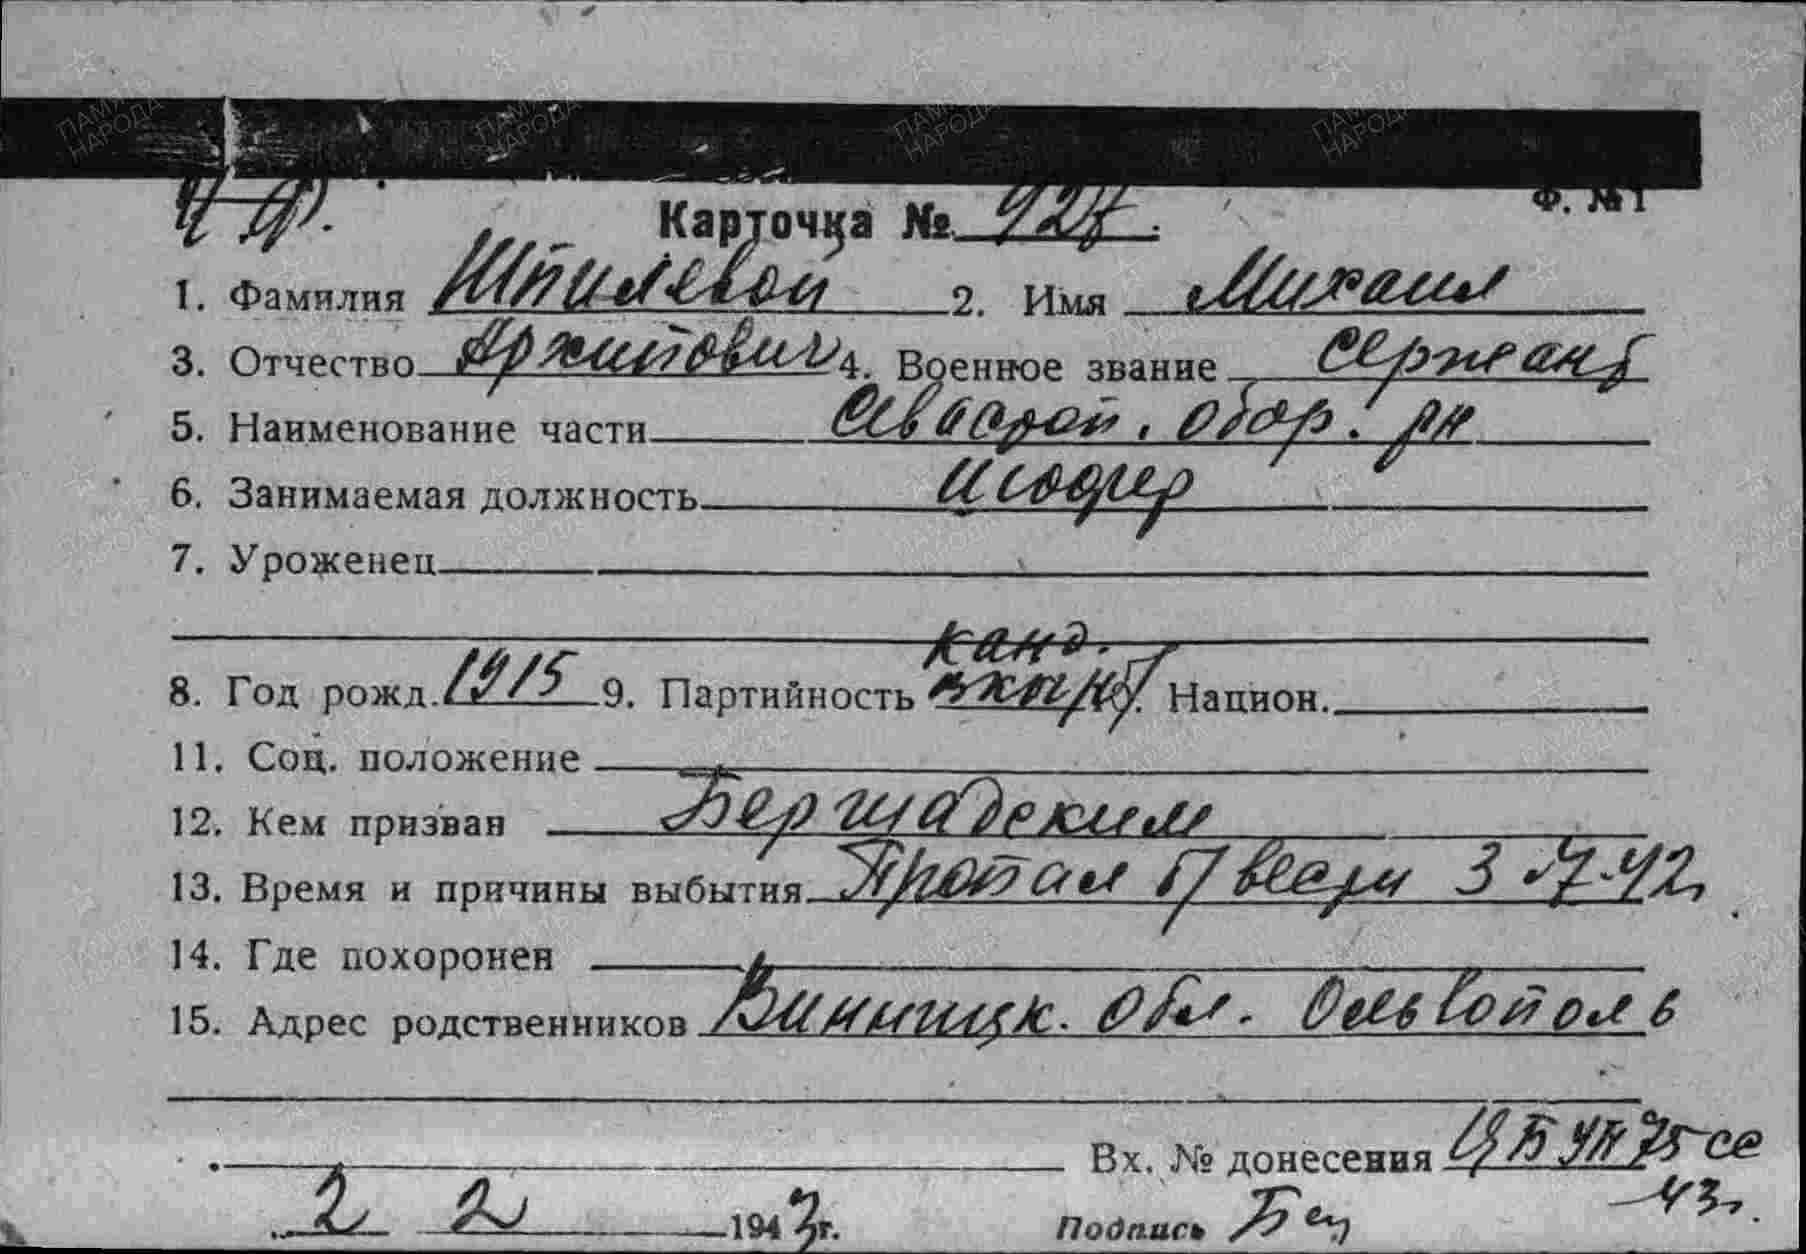 Ф. №1
ЧФ.
Карточка № 927.
1. Фамилия Шпилевой 2. Имя Михаил
3. Отчество Архипович 4. Военное звание сержант
5. Наименование части Севастоп. обор. рн
6. Занимаемая должность шофер
7. Уроженец
канд.
8. Год рожд. 1915 9. Партийность вкп/б/. Национ.
11. Соц. положение
12. Кем призван Бершадским
13. Время и причины выбытия Пропал б/вести 3.7.42г
14. Где похоронен
15. Адрес родственников Винницк. обл. Ольвополь
Вх. № донесения ЦБ УП 75 сс
43г.
2 2 1943г. Подпись
ПАМЯТЬ НАРОДА